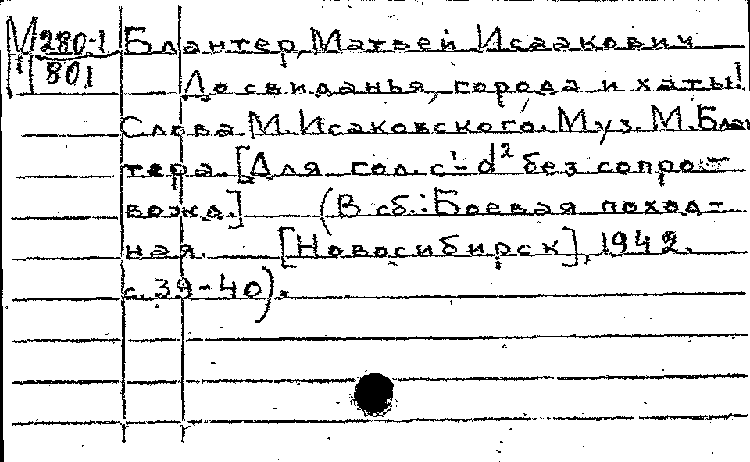 М 280-1 Блантер, Матвей Исаакович
801
До свиданья, города и хаты!
Слова М. Исаковского. Муз. М. Блан-
тера. [Для гол. c¹-d² без сопро-
вожд.] (В сб.: Боевая поход-
ная. [Новосибирск], 1942.
с. 39-40).